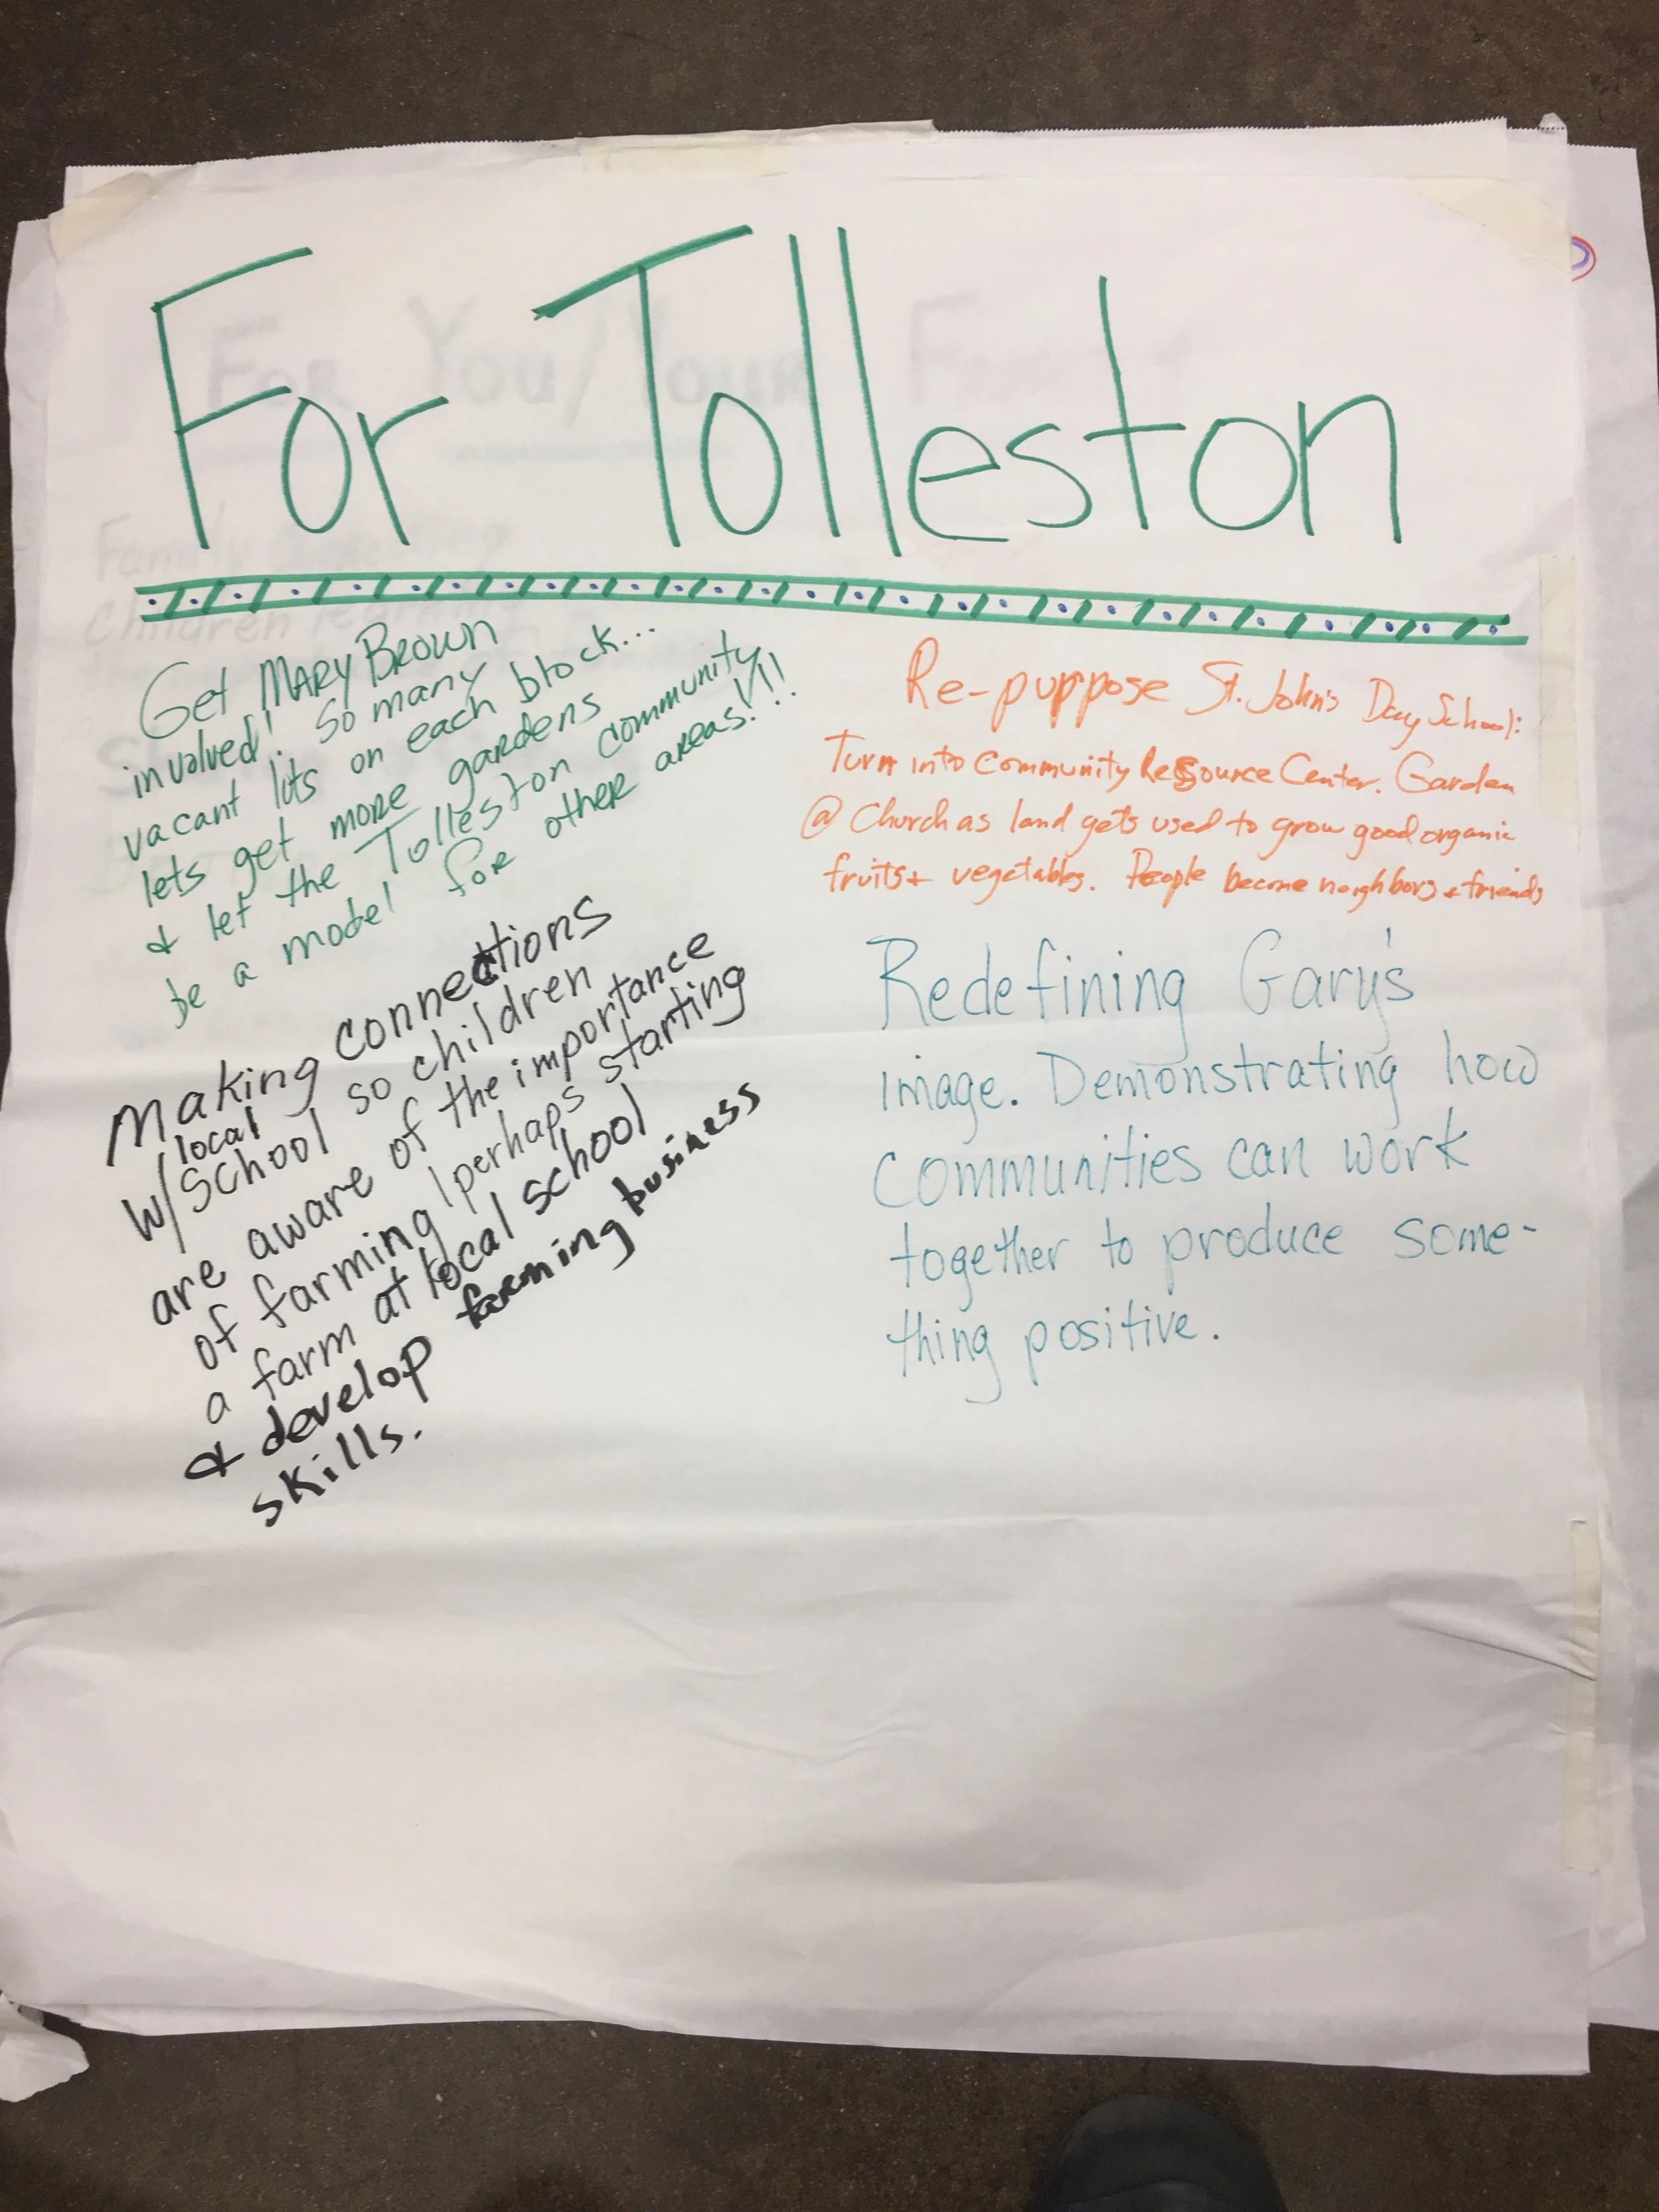 For Tolleston
Get MARY BROWN
involved! So many
vacant lots on each block...
lets get more gardens
& let the Tolleston community
be a model for other areas!!!
Making connections
local
w/ School so children
are aware of the importance
of farming/perhaps starting
a farm at local school
& develop farming business
skills.
Re-puppose St. John's Day School:
Turn into Community Resource Center. Garden
@ Church as land gets used to grow good organic
fruits + vegetables. People become neighbors + friends
Redefining Gary's
image. Demonstrating how
communities can work
together to produce some-
thing positive.
FOR YOU/YOUR
Family
Children learning